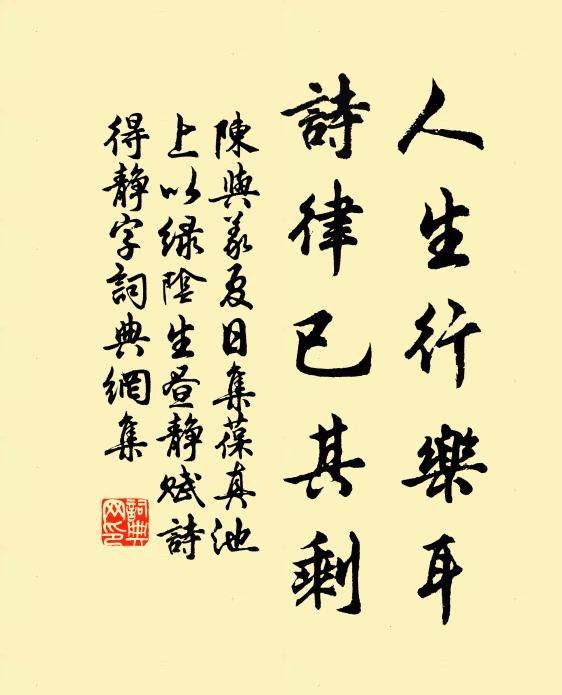 人生行樂耳
詩律已其剩
陳與義夏日集葆真池
上以绿陰生昼静赋詩
得静字詞典網集
詞典網印